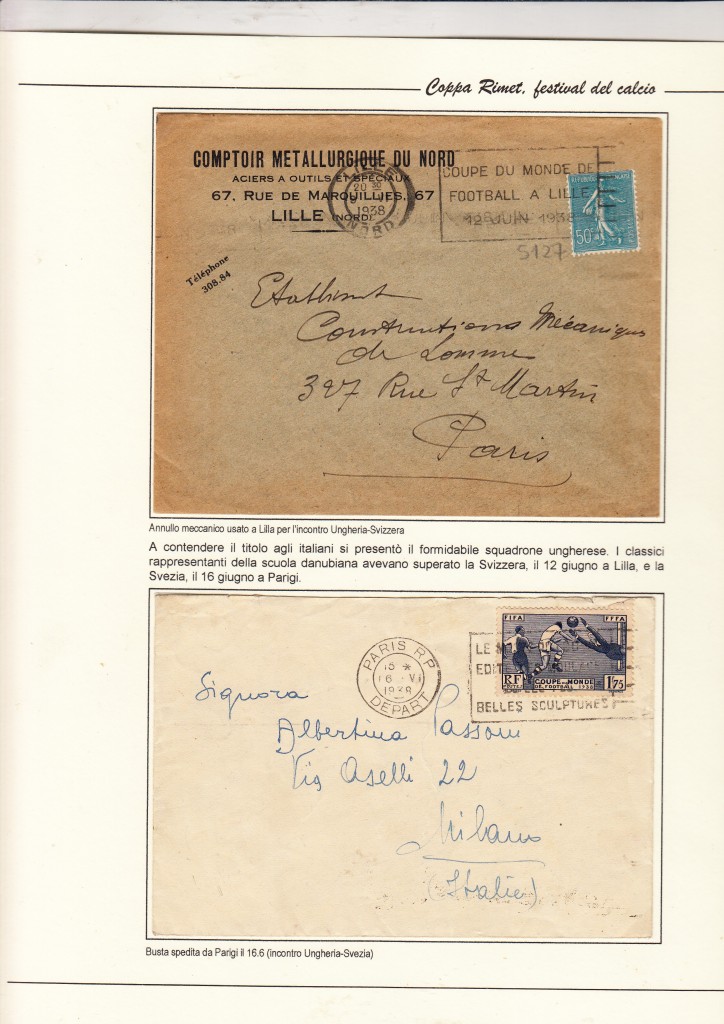 Coppa Rimet, festival del calcio
COMPTOIR METALLURGIQUE DU NORD
ACIERS A OUTILS ET SPÉCIAUX
67, RUE DE MARQUILLIES, 67
LILLE (NORD)
LILLE
20 30
1938
NORD
COUPE DU MONDE DE
FOOTBALL A LILLE
12 JUIN 1938
50c
5127
Téléphone
308.84
Constructions Mécaniques
de Lomme
327 Rue St Martin
Paris
Annullo meccanico usato a Lilla per l'incontro Ungheria-Svizzera
A contendere il titolo agli italiani si presentò il formidabile squadrone ungherese. I classici
rappresentanti della scuola danubiana avevano superato la Svizzera, il 12 giugno a Lilla, e la
Svezia, il 16 giugno a Parigi.
PARIS R.P.
15 *
16 VI
1938
DEPART
LE
EDIT
BELLES SCULPTURES
FIFA
FFFA
RF
COUPE DU MONDE
DE FOOTBALL 1938
1F75
Signora
Albertina Passoni
Via Aselli 22
Milano
(Italie)
Busta spedita da Parigi il 16.6 (incontro Ungheria-Svezia)